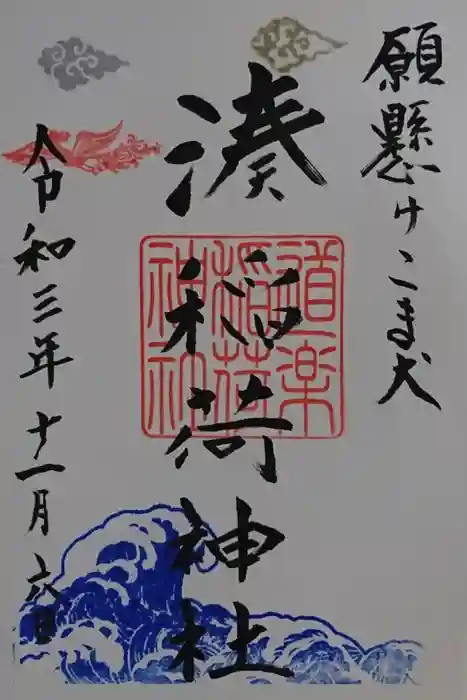 願懸けこま犬
湊稲荷神社
道楽稲荷神社
令和三年十一月六日